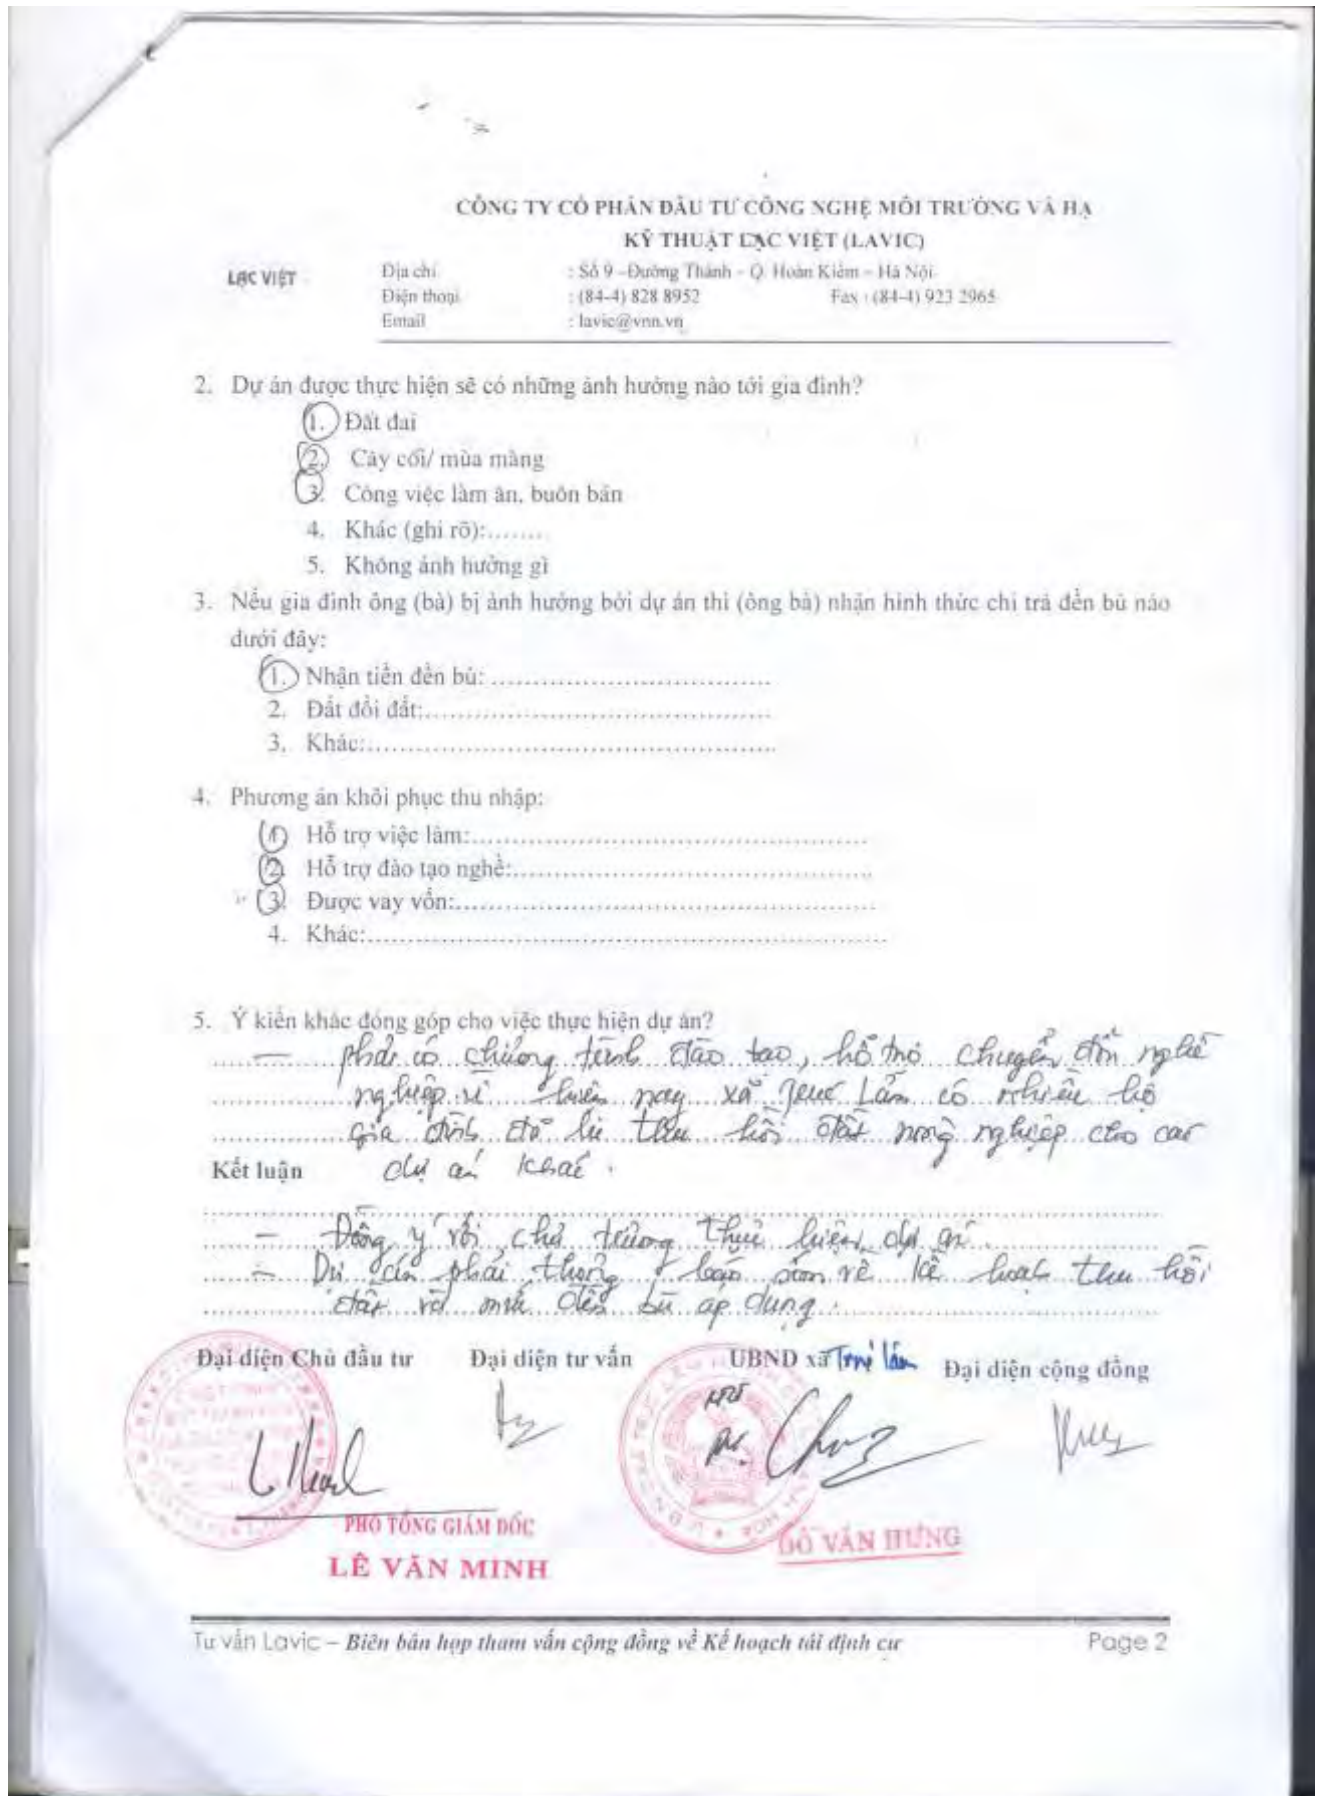 CÔNG TY CỔ PHẦN ĐẦU TƯ CÔNG NGHỆ MÔI TRƯỜNG VÀ HẠ
KỸ THUẬT LẠC VIỆT (LAVIC)
LẠC VIỆT
Địa chỉ : Số 9 – Đường Thành – Q. Hoàn Kiếm – Hà Nội
Điện thoại : (84-4) 828 8952 Fax : (84-4) 923 2965
Email : lavic@vnn.vn
2. Dự án được thực hiện sẽ có những ảnh hưởng nào tới gia đình?
1. Đất đai
2. Cây cối/ mùa màng
3. Công việc làm ăn, buôn bán
4. Khác (ghi rõ):.......
5. Không ảnh hưởng gì
3. Nếu gia đình ông (bà) bị ảnh hưởng bởi dự án thì (ông bà) nhận hình thức chi trả đền bù nào
dưới đây:
1. Nhận tiền đền bù: ...................................
2. Đất đổi đất:...........................................
3. Khác:..................................................
4. Phương án khôi phục thu nhập:
1 Hỗ trợ việc làm:.................................................
2. Hỗ trợ đào tạo nghề:............................................
3. Được vay vốn:....................................................
4. Khác:................................................................
5. Ý kiến khác đóng góp cho việc thực hiện dự án?
– phải có chương trình đào tạo, hỗ trợ chuyển đổi nghề
nghiệp vì hiện nay xã Trúc Lâm có nhiều hộ
gia đình đã bị thu hồi đất nông nghiệp cho các
Kết luận dự án khác.
– Đồng ý với chủ trương thực hiện dự án.
– Dự án phải thông báo sớm về kế hoạch thu hồi
đất và mức đền bù áp dụng.
Đại diện Chủ đầu tư Đại diện tư vấn UBND xã Trúc Lâm Đại diện cộng đồng
PHÓ TỔNG GIÁM ĐỐC
LÊ VĂN MINH
ĐỖ VĂN HƯNG
Tư vấn Lavic – Biên bản họp tham vấn cộng đồng về Kế hoạch tái định cư Page 2